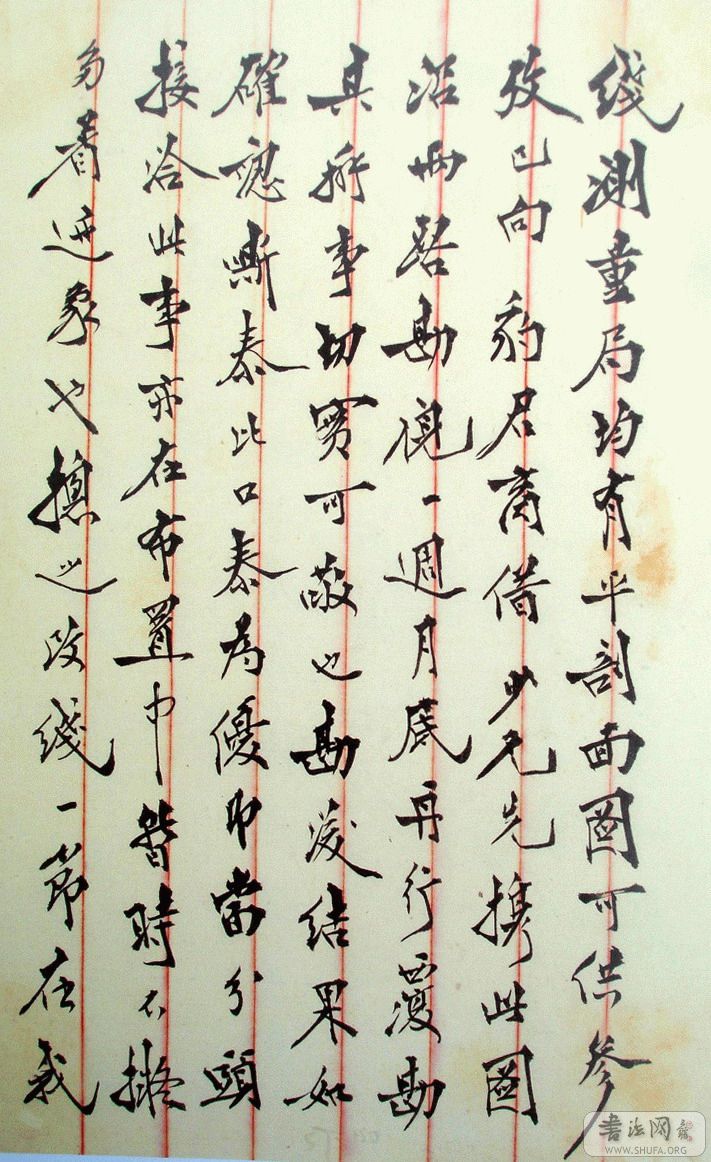 綫測量局均有平剖面圖可供參
攷已向 豹君商借 少兄先携此圖
沿兩路勘視一週月底再行覆勘
其辦事切實可敬也勘後結果如
確認嘶泰比口泰為優即當分頭
接洽此事亦在布置中暫時不擬
多着迹象也總之改綫一節在我
書法网
WWW.SHUFA.ORG